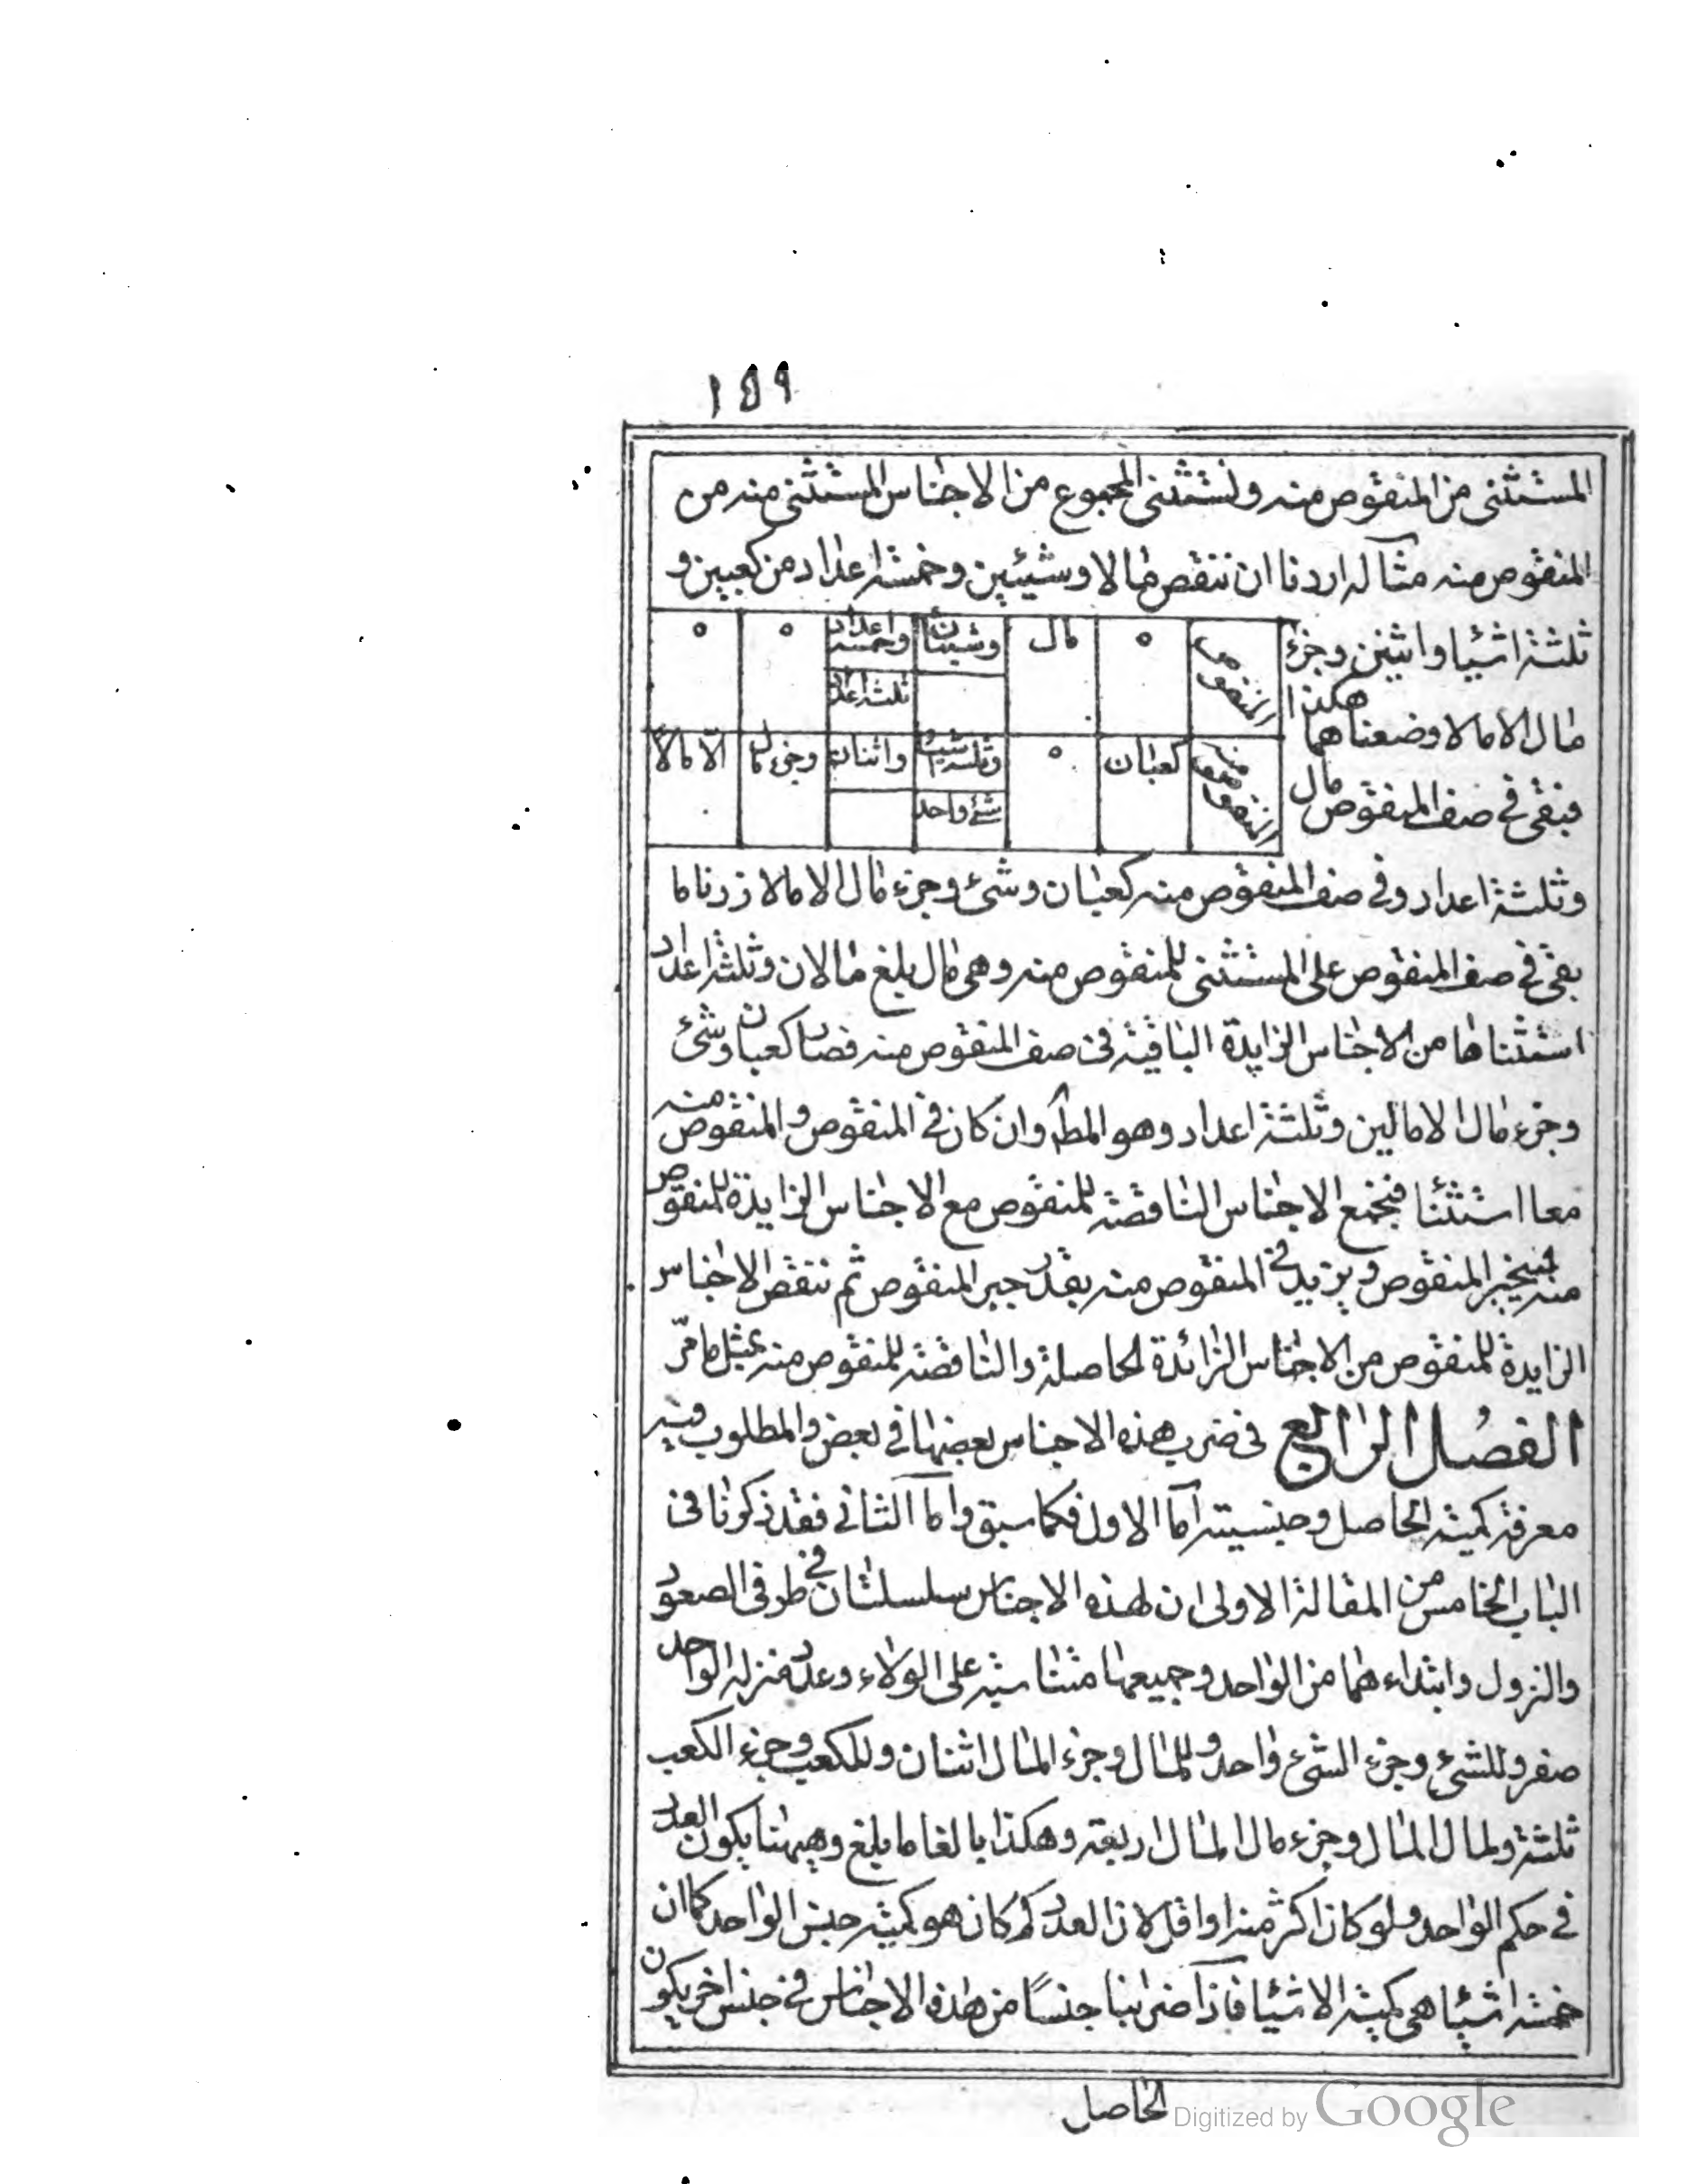 ١٥٩
المستثنى من المنقوص منه ونستثنى المجموع من الاجناس المستثنى منه من
المنقوص منه مثاله اردنا ان ننقص مالا وشيئين وخمسة اعداد من كعبين و
ثلثة اشيا واثنين وجزء
هكذا
مال الا مالا وضعناهما
فبقى فى صف المنقوص مال
المنقوص ٥ مال وشيئان وخمسة اعداد ٥ ٥
ثلثة اعداد
المنقوص منه كعبان ٥ وثلثة اشيا واثنان وجزء مال الا مالا
شئ واحد
وثلثة اعداد وفى صف المنقوص منه كعبان وشئ وجزء مال الا مالا زدنا ما
بقى فى صف المنقوص على المستثنى للمنقوص منه وهى مال بلغ مالان وثلثة اعداد
استثناها من الاجناس الزايدة الباقية فى صف المنقوص منه فصار كعبان وشئ
وجزء مال الا مالين وثلثة اعداد وهو المط وان كان فى المنقوص والمنقوص منه
معا استثنا فيجمع الاجناس الناقصة للمنقوص مع الاجناس الزايدة للمنقوص
منه فيجبر المنقوص ويزيد فى المنقوص منه بقدر جبر المنقوص ثم ننقص الاجناس
الزايدة للمنقوص من الاجناس الزائدة الحاصلة والناقصة للمنقوص منه بمثل ما مرّ
الفصل الرابع فى ضرب هذه الاجناس بعضها فى بعض والمطلوب فيه
معرفة كمية الحاصل وجنسيته اما الاول فكما سبق واما الثانى فقد ذكرنا فى
الباب الخامس من المقالة الاولى ان لهذه الاجناس سلسلتان فى طرفى الصعود
والنزول وابتداءهما من الواحد وجميعها متناسبة على الولاء وعدد منزلة الواحد
صفر وللشئ وجزء الشئ واحد وللمال وجزء المال اثنان وللكعب وجزء الكعب
ثلثة ولمال المال وجزء مال المال اربعة وهكذا بالغا ما بلغ وههنا يكون العدد
فى حكم الواحد ولو كان اكثر منه او اقل لان العدد كم كان هو كمية جنس الواحد كما ان
خمسة اشيا هى كمية الاشيا فاذا ضربنا جنسًا من هذه الاجناس فى جنس اخر يكون
الحاصل
Digitized by Google